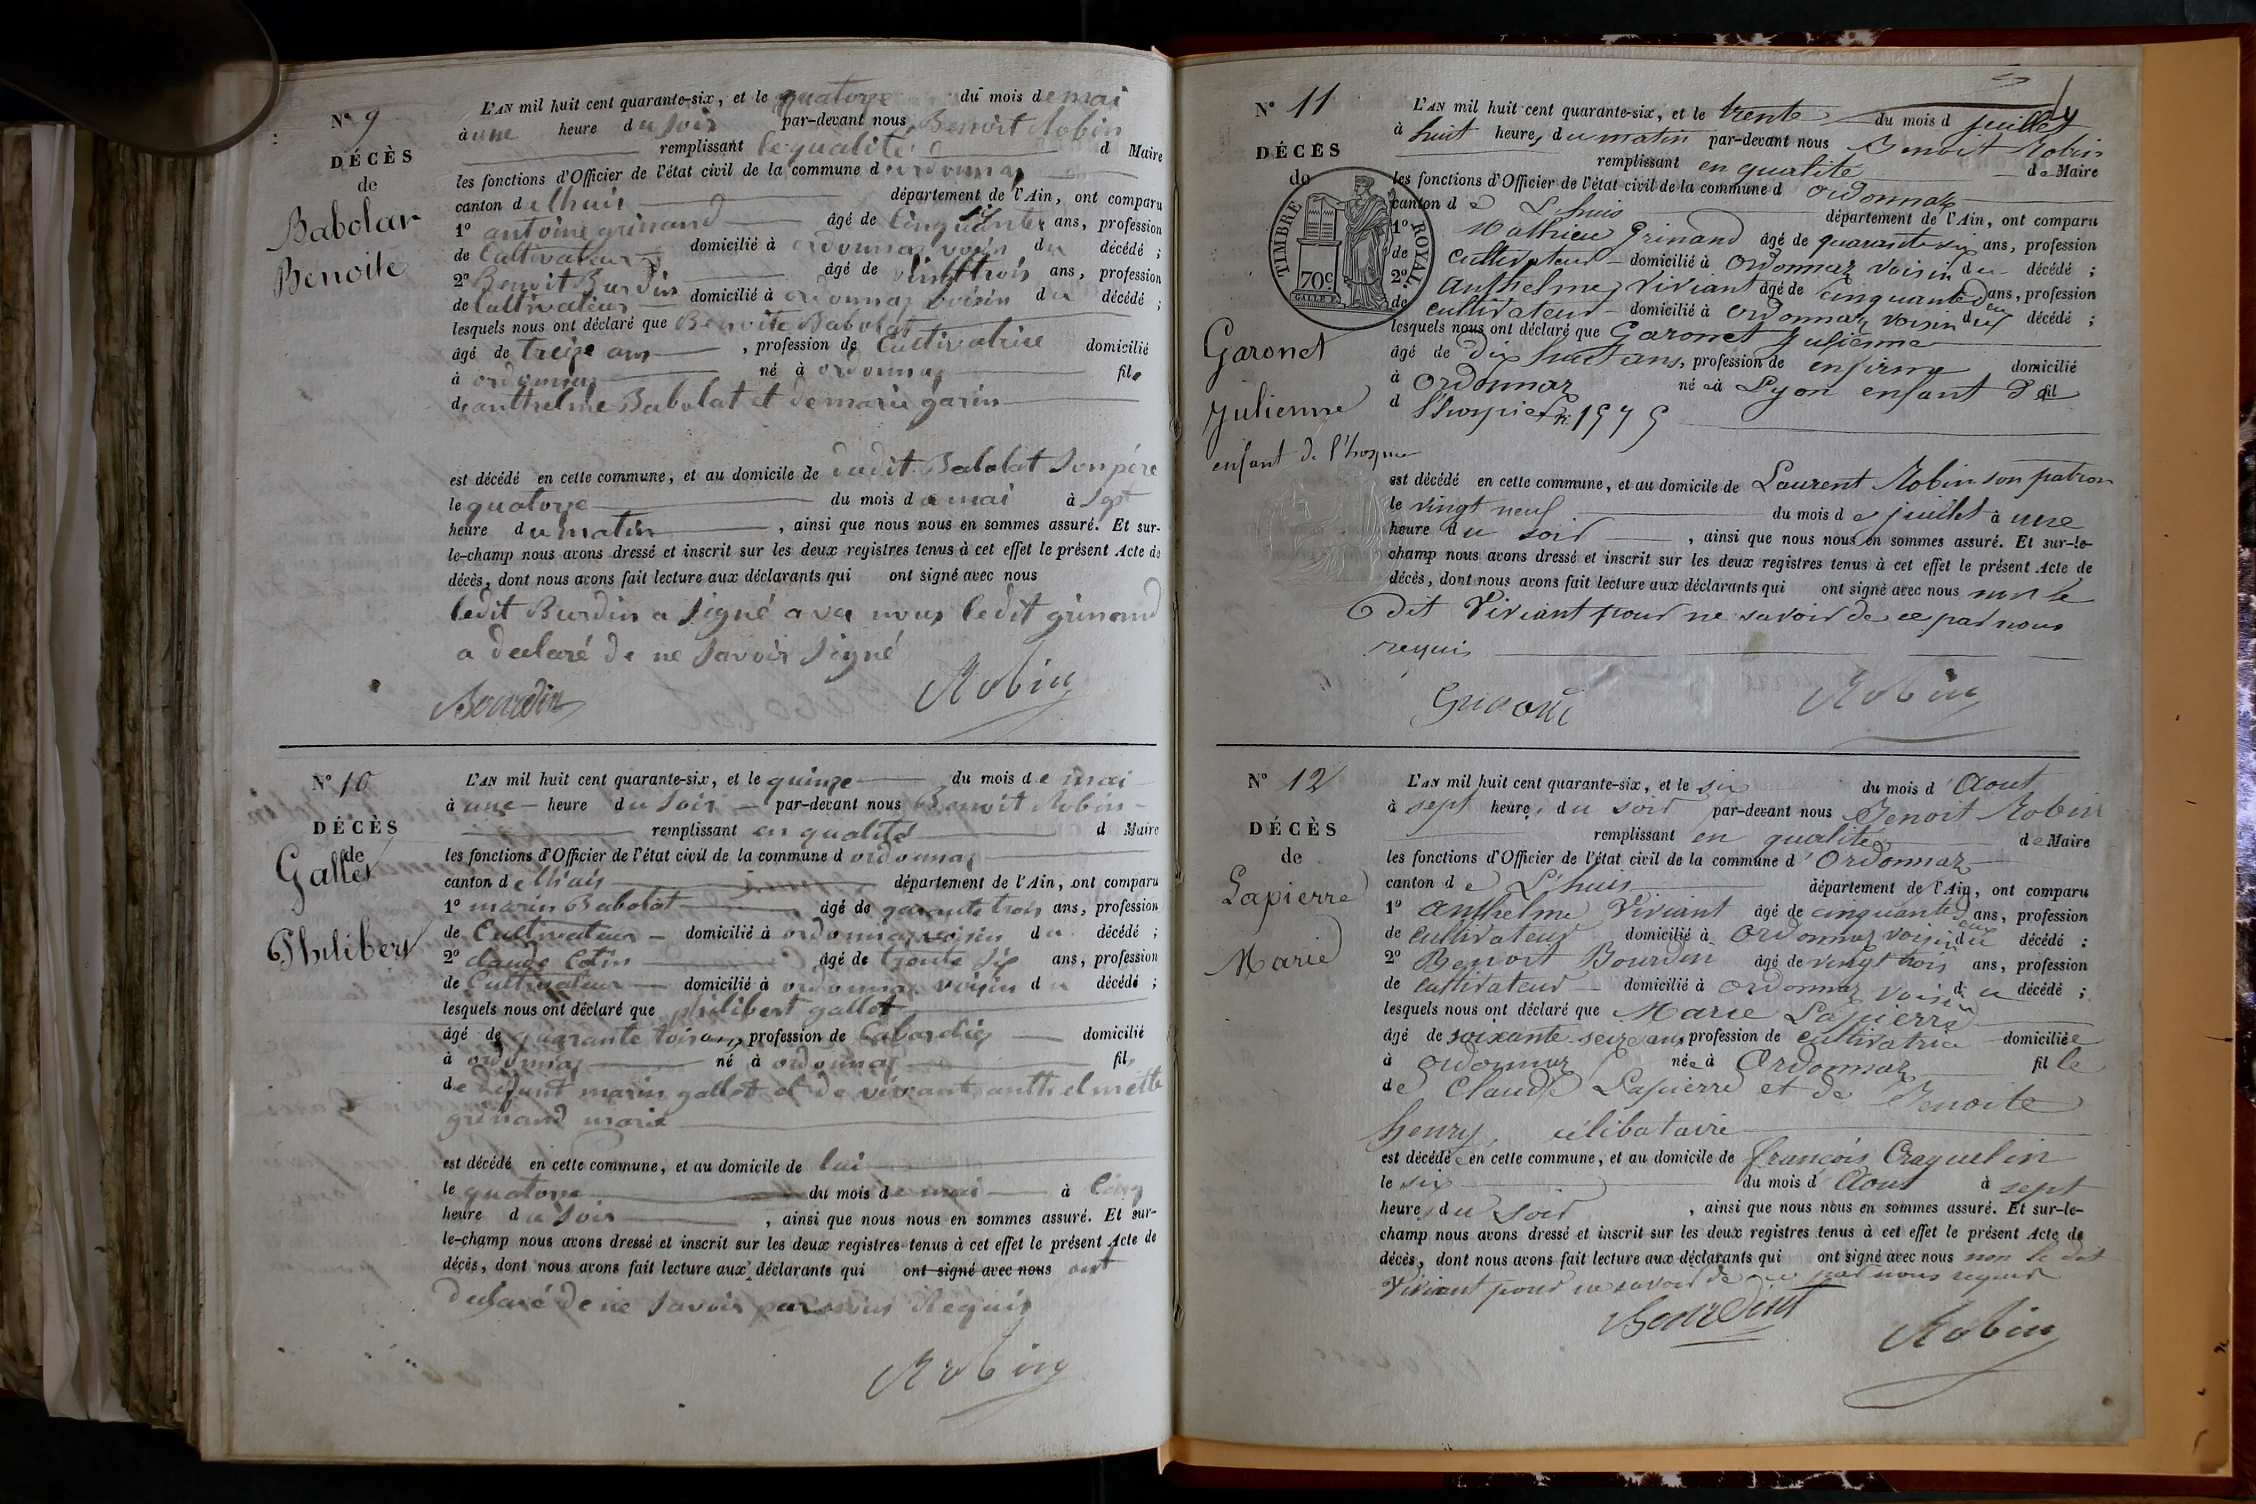 N° 9
DÉCÈS
de
Babolat
Benoite
L'AN mil huit cent quarante-six, et le quatorze du mois de mai
à une heure du soir par-devant nous Benoit Robin
remplissant le qualité d Maire
les fonctions d'Officier de l'état civil de la commune d ordonnaz
canton de lhuis département de l'Ain, ont comparu
1° antoine grinand âgé de cinquante ans, profession
de Cultivateur domicilié à ordonnaz voisin du décédé ;
2° Benoit Burdin âgé de vingt trois ans, profession
de Cultivateur domicilié à ordonnaz voisin du décédé ;
lesquels nous ont déclaré que Benoite Babolat
âgé de treize ans , profession de Cultivatrice domicilié
à ordonnaz né à ordonnaz fille
d anthelme Babolat et de marie garin
est décédé en cette commune, et au domicile de dudit Babolat son père
le quatorze du mois de mai à sept
heure du matin , ainsi que nous nous en sommes assuré. Et sur-
le-champ nous avons dressé et inscrit sur les deux registres tenus à cet effet le présent Acte de
décès, dont nous avons fait lecture aux déclarants qui ont signé avec nous
ledit Burdin a signé avec nous ledit grinand
a declaré de ne savoir signé
Bourdin Robin
N° 10
DÉCÈS
de
Gallet
Philibert
L'AN mil huit cent quarante-six, et le quinze du mois de mai
à une heure du soir par-devant nous Benoit Robin
remplissant en qualité d Maire
les fonctions d'Officier de l'état civil de la commune d ordonnaz
canton de lhuis département de l'Ain, ont comparu
1° marin Babolat âgé de garante trois ans, profession
de Cultivateur domicilié à ordonnaz voisin du décédé ;
2° claude Cotin âgé de trente six ans, profession
de Cultivateur domicilié à ordonnaz voisin du décédé ;
lesquels nous ont déclaré que philibert gallet
âgé de quarante trois ans, profession de Cabardier domicilié
à ordonnaz né à ordonnaz fils
de défunt marin gallet et de vivante anthelmette
grinand marié
est décédé en cette commune, et au domicile de lui
le quatorze du mois de mai à cinq
heure du soir , ainsi que nous nous en sommes assuré. Et sur-
le-champ nous avons dressé et inscrit sur les deux registres tenus à cet effet le présent Acte de
décès, dont nous avons fait lecture aux déclarants qui ont signé avec nous ont
declaré de ne savoir par nous Requis
Robin
N° 11
DÉCÈS
de
TIMBRE ROYAL
70c
Garonet
Julienne
enfant de l'hospice
L'AN mil huit cent quarante-six, et le trente du mois d juillet
à huit heures du matin par-devant nous Benoit Robin
remplissant en qualité de Maire
les fonctions d'Officier de l'état civil de la commune d Ordonnaz
canton de L'huis département de l'Ain, ont comparu
1° Mathieu Grinand âgé de quarante six ans, profession
de cultivateur domicilié à Ordonnaz voisin du décédé ;
2° Anthelme Viviant âgé de cinquante deux ans, profession
de cultivateur domicilié à Ordonnaz voisin du décédé ;
lesquels nous ont déclaré que Garonet Julienne
âgé de dix huit ans, profession de infirme domicilié
à Ordonnaz née à Lyon enfant d fil
d l'hospice
est décédé en cette commune, et au domicile de Laurent Robin son patron
le vingt neuf du mois de juillet à une
heure du soir , ainsi que nous nous en sommes assuré. Et sur-le-
champ nous avons dressé et inscrit sur les deux registres tenus à cet effet le présent Acte de
décès, dont nous avons fait lecture aux déclarants qui ont signé avec nous non le
dit Viviant pour ne savoir de ce par nous
requis
Robin
N° 12
DÉCÈS
de
Lapierre
Marie
L'AN mil huit cent quarante-six, et le six du mois d'Aout
à sept heures du soir par-devant nous Benoit Robin
remplissant en qualité de Maire
les fonctions d'Officier de l'état civil de la commune d'Ordonnaz
canton de L'huis département de l'Ain, ont comparu
1° Anthelme Viviant âgé de cinquante deux ans, profession
de cultivateur domicilié à Ordonnaz voisin du décédé ;
2° Benoit Bourdin âgé de vingt trois ans, profession
de cultivateur domicilié à Ordonnaz voisin du décédé ;
lesquels nous ont déclaré que Marie Lapierre
âgé de soixante seize ans profession de cultivatrice domiciliée
à Ordonnaz née à Ordonnaz fille
de Claude Lapierre et de Benoite
henry, célibataire
est décédée en cette commune, et au domicile de françois Craquelin
le six du mois d'Aout à sept
heures du soir , ainsi que nous nous en sommes assuré. Et sur-le-
champ nous avons dressé et inscrit sur les deux registres tenus à cet effet le présent Acte de
décès, dont nous avons fait lecture aux déclarants qui ont signé avec nous non le dit
Viviant pour ne savoir de ce par nous requis
Bourdin Robin